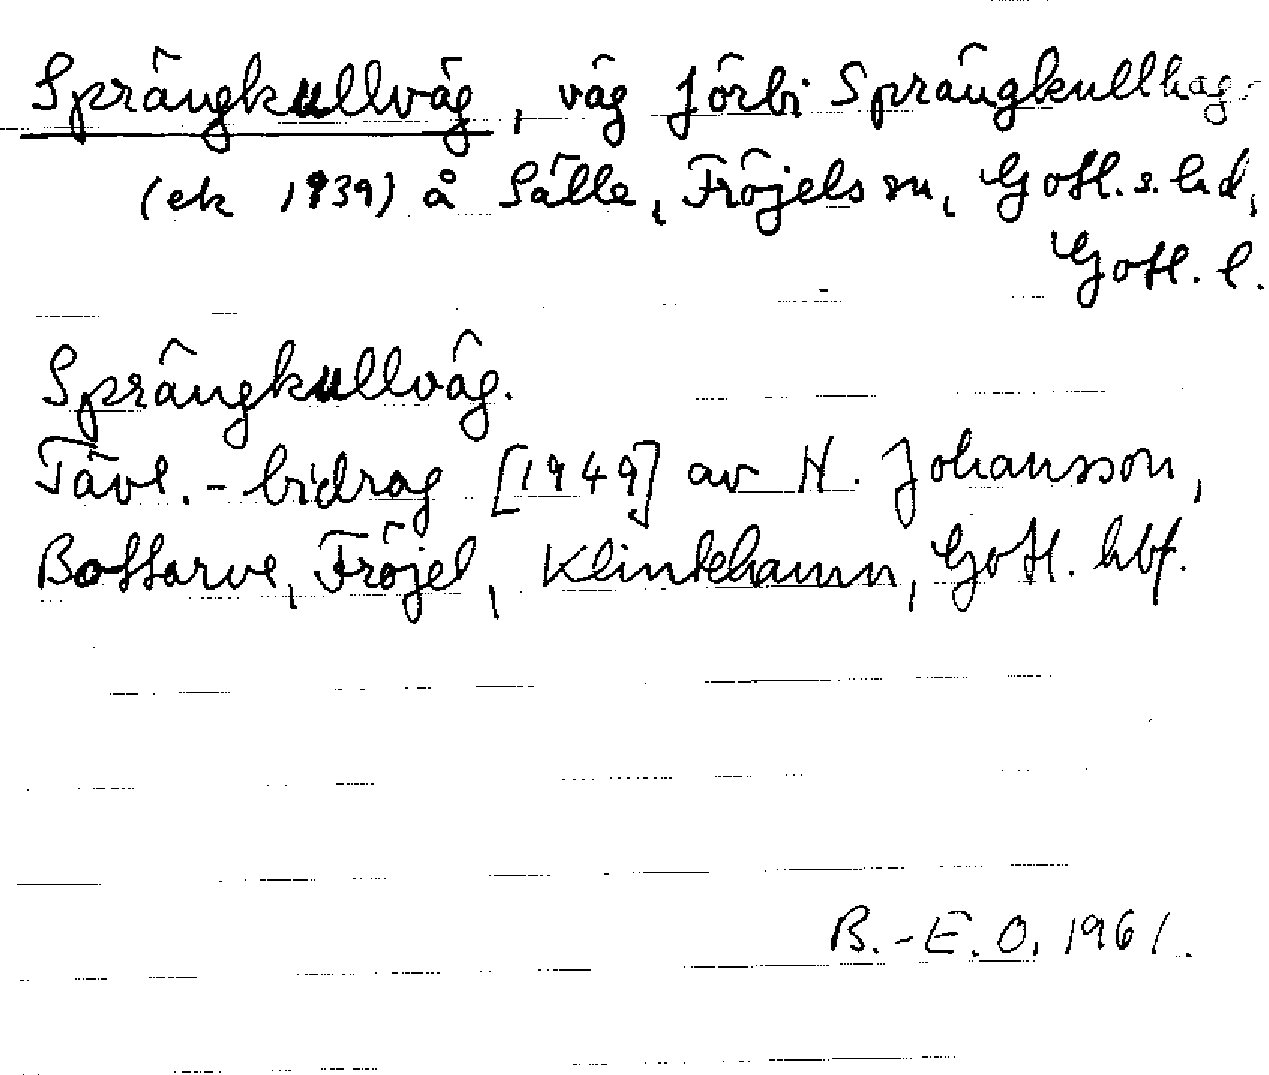 Sprängkullväg, väg förbi Sprängkullhag-
(ek 1939) å Sälle, Fröjels sn, Gotl. s. hd,
Gotl. l.
Sprängkullväg.
Tävl.-bidrag [1949] av H. Johansson,
Bottarve, Fröjel, Klintehamn, Gotl. hbf.
B.-E. O. 1961.